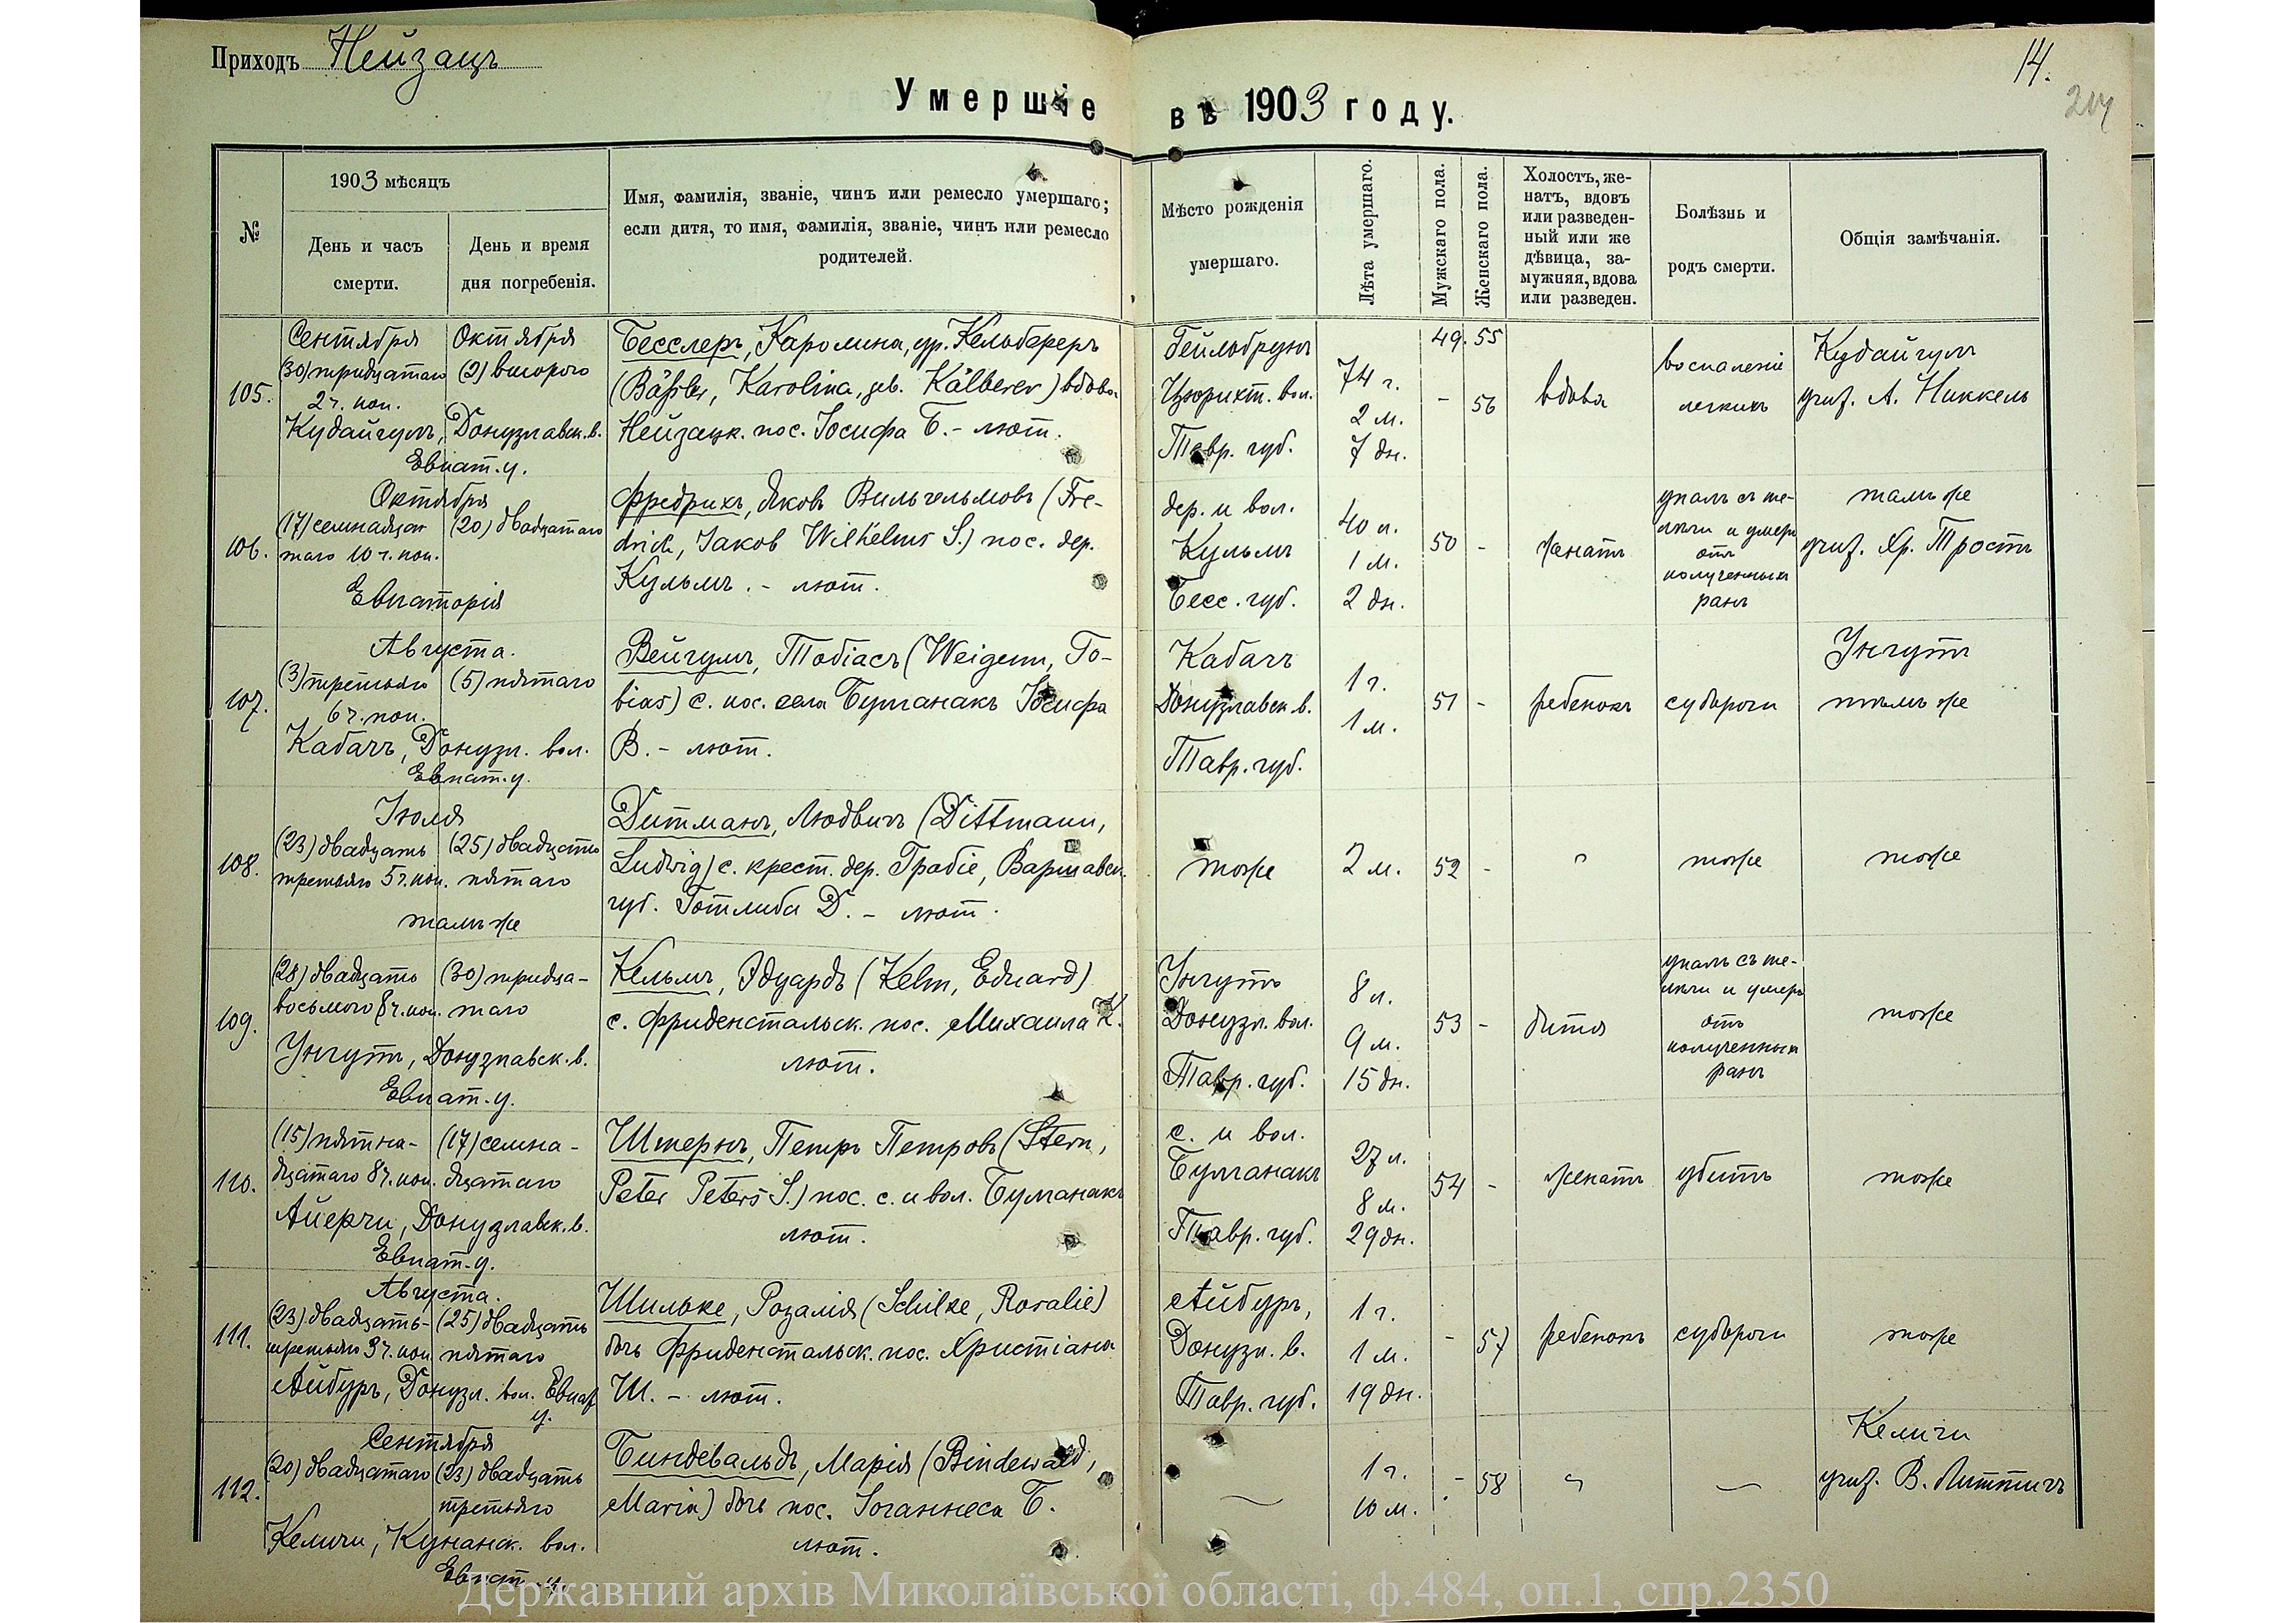 Приходъ Нейзацъ
14.
Умершіе въ 1903 году.
№
1903 мѣсяцъ
День и часъ смерти.
День и время дня погребенія.
Имя, фамилія, званіе, чинъ или ремесло умершаго;
если дитя, то имя, фамилія, званіе, чинъ или ремесло
родителей.
Мѣсто рожденія
умершаго.
Лѣта умершаго.
Мужскаго пола.
Женскаго пола.
Холостъ, же-
натъ, вдовъ
или разведен-
ный или же
дѣвица, за-
мужняя, вдова
или разведен.
Болѣзнь и
родъ смерти.
Общія замѣчанія.
49. 55
105.
Сентября
(30) тридцатаго
2 ч. поп.
Октября
(2) второго
Кудайгулъ, Донузлавск. в.
Евпат. у.
Бесслеръ, Каролина, ур. Кельбереръ
(Bäßler, Karolina, geb. Kälberer) вдова
Нейзацк. пос. Іосифа Б. - лют.
Гейльбрунъ
Цюрихт. вол.
Тавр. губ.
74 г.
2 м.
7 дн.
- 56
вдова
воспаленіе
легкихъ
Кудайгулъ
учит. А. Никкель
106.
Октября
(17) семнадца-
таго 10 ч. поп.
(20) двадцатаго
Евпаторія
Фредрихъ, Яковъ Вильгельмовъ (Fre-
drich, Jakob Wilhelms S.) пос. дер.
Кульмъ. - лют.
дер. и вол.
Кульмъ
Бесс. губ.
40 л.
1 м.
2 дн.
50 -
женатъ
упалъ съ те-
лѣги и умеръ
отъ
полученныхъ
ранъ
тамъ же
учит. Хр. Тростъ
107.
Августа.
(3) третьяго
6 ч. поп.
(5) пятаго
Кабачъ, Донузл. вол.
Евпат. у.
Вейгумъ, Тобіасъ (Weigum, To-
bias) с. пос. села Булганакъ Іосифа
В. - лют.
Кабачъ
Донузлавск. в.
Тавр. губ.
1 г.
1 м.
51 -
ребенокъ
судороги
Унгутъ
тамъ же
108.
Іюля
(23) двадцать
третьяго 5 ч. поп.
(25) двадцать
пятаго
тамъ же
Дитманъ, Людвигъ (Dittmann,
Ludwig) с. крест. дер. Грабіе, Варшавск.
губ. Готлиба Д. - лют.
тоже
2 м.
52 -
"
тоже
тоже
109.
(28) двадцать
восьмого 8 ч. поп.
(30) тридца-
таго
Унгутъ, Донузлавск. в.
Евпат. у.
Кельмъ, Эдуардъ (Kelm, Eduard)
с. Фриденстальск. пос. Михаила К.
лют.
Унгутъ
Донузл. вол.
Тавр. губ.
8 л.
9 м.
15 дн.
53 -
дитя
упалъ съ те-
лѣги и умеръ
отъ
полученныхъ
ранъ
тоже
110.
(15) пятна-
дцатаго 8 ч. поп.
(17) семна-
дцатаго
Айерчи, Донузлавск. в.
Евпат. у.
Штернъ, Петръ Петровъ (Stern,
Peter Peters S.) пос. с. и вол. Булганакъ
лют.
с. и вол.
Булганакъ
Тавр. губ.
27 л.
8 м.
29 дн.
54 -
женатъ
убитъ
тоже
111.
Августа.
(23) двадцать-
третьяго 3 ч. поп
(25) двадцать
пятаго
Айбуръ, Донузл. вол. Евпат
у.
Шильке, Розалія (Schilke, Rosalie)
дочь Фриденстальск. пос. Христіана
Ш. - лют.
Айбуръ,
Донузл. в.
Тавр. губ.
1 г.
1 м.
19 дн.
- 57
ребенокъ
судороги
тоже
112.
Сентября
(20) двадцатаго
(23) двадцать
третьяго
Келичи, Кунанск. вол.
Евпат. у.
Биндевальдъ, Марія (Bindewald,
Maria) дочь пос. Іоганнеса Б.
лют.
—
1 г.
10 м.
- 58
"
—
Келичи
учит. В. Литтихъ
Державний архів Миколаївської області, ф.484, оп.1, спр.2350